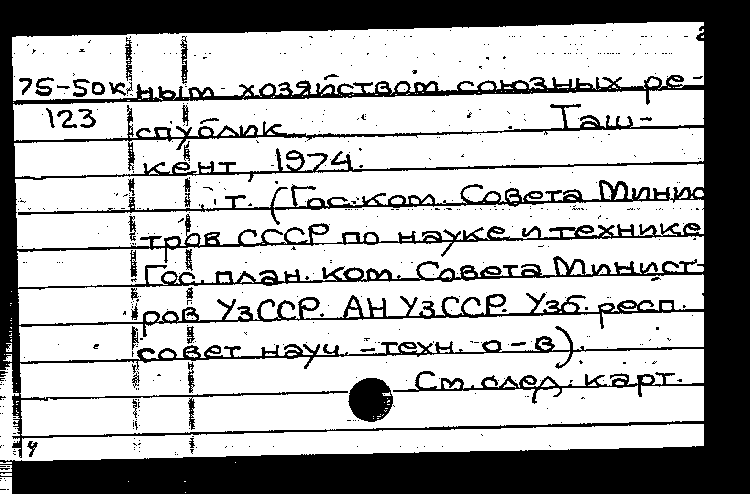 2
75-50к ным хозяйством союзных ре-
123 спублик Таш-
кент, 1974.
т. (Гос. ком. Совета Минис
тров СССР по науке и технике
Гос. план. ком. Совета Министр-
ров УзССР. АН УзССР. Узб. респ.
совет науч.-техн. о-в).
См. след. карт.
4